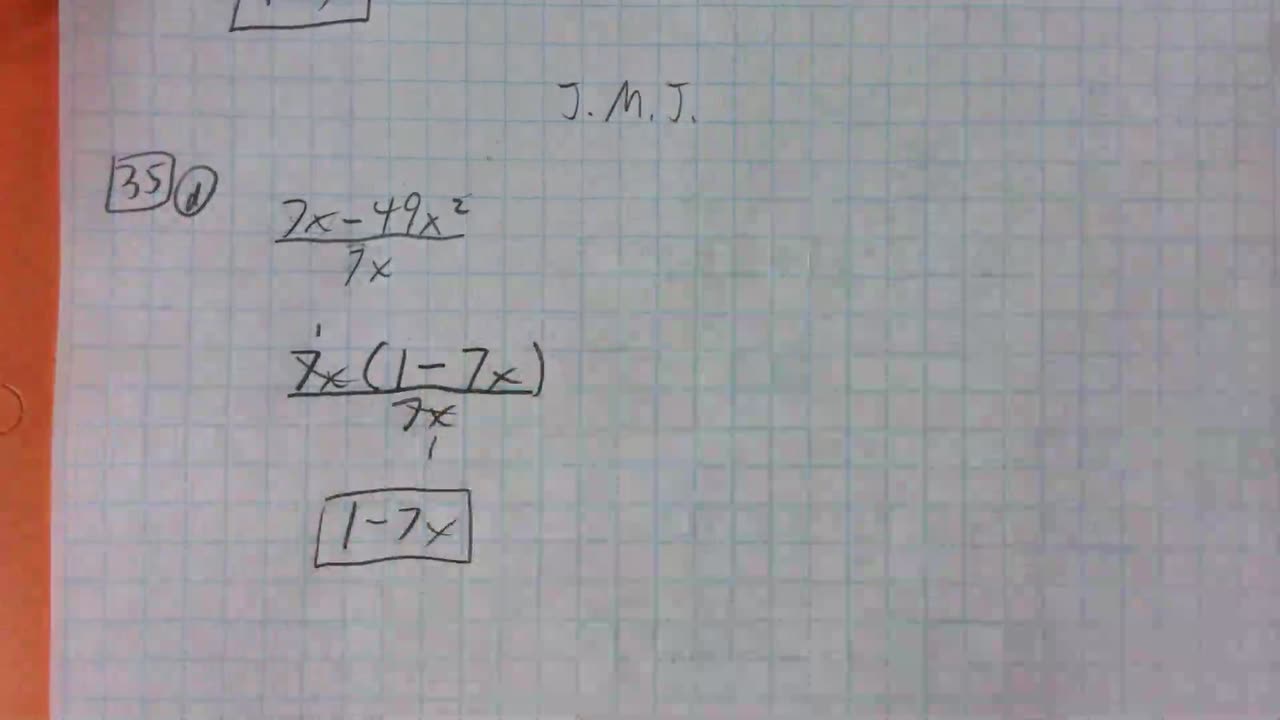 J.M.J.
35 d
7x - 49x²
7x
1
7x(1 - 7x)
7x
1
1 - 7x